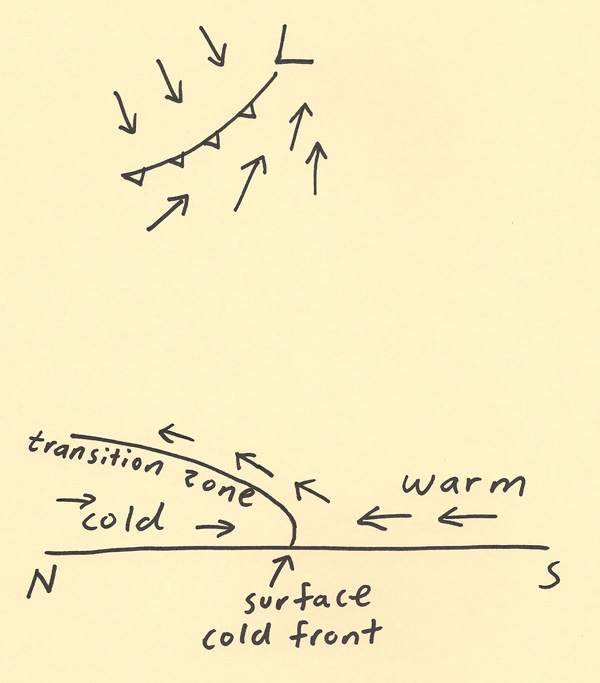 L
transition zone
warm
cold
N
S
surface
cold front